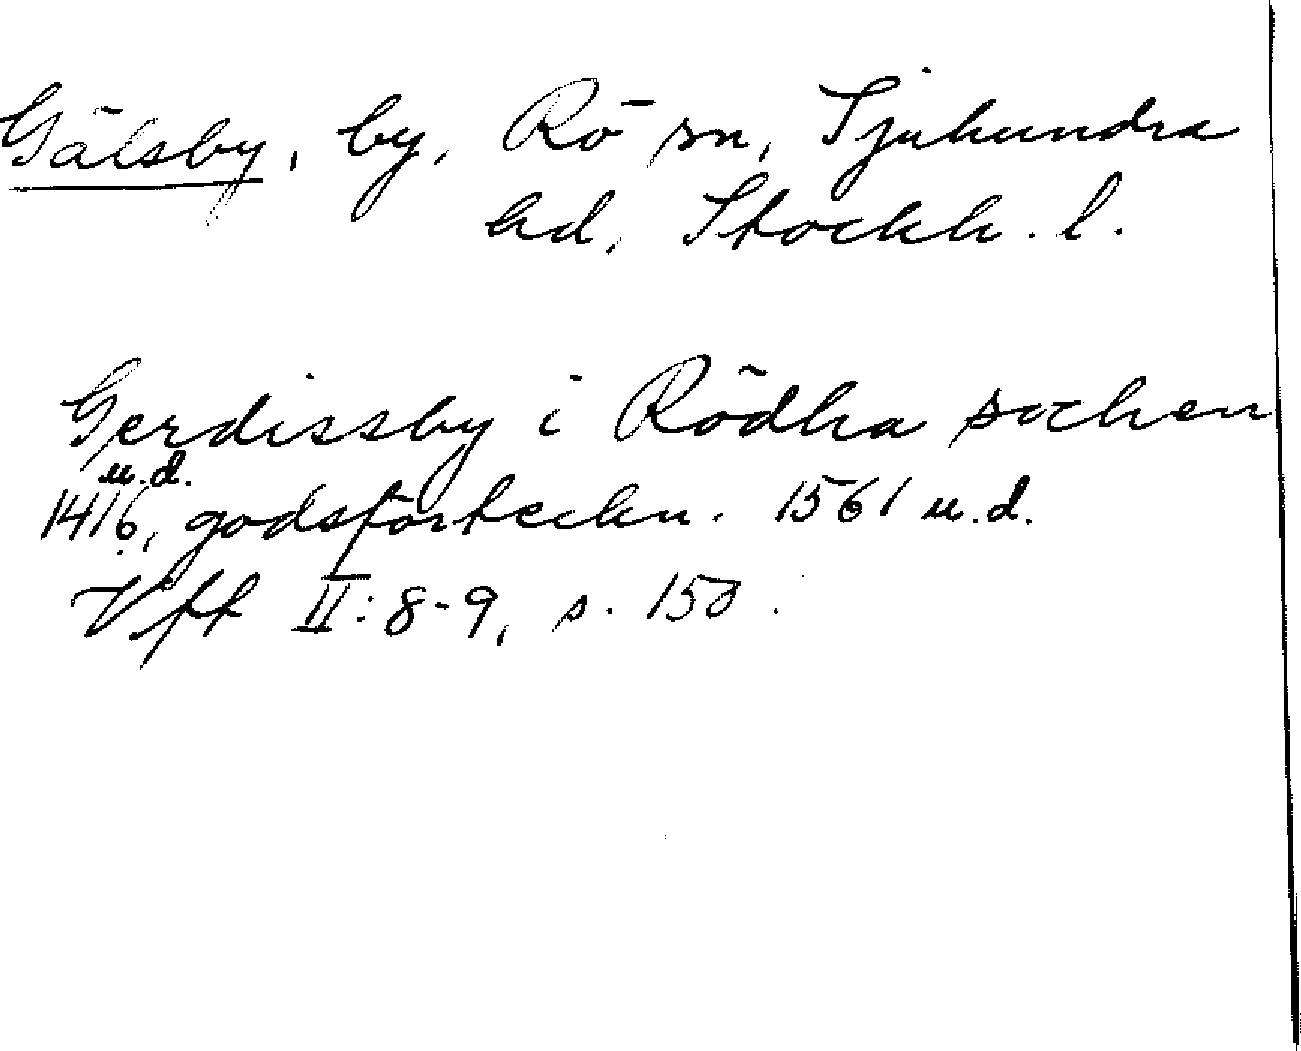 Gälsby, by, Rö sn, Sjuhundra
hd, Stockh. l.
Gerdissby i Rödha sochen
u.d.
1416, godsförteckn. 1561 u.d.
Vff II: 8-9, s. 150.